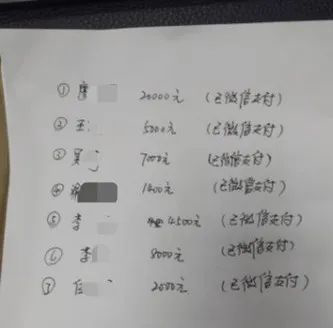 ① 唐 20000元 (已微信支付)
② 王 5000元 (已微信支付)
③ 吴 7000元 (已微信支付)
④ 1400元 (已微信支付)
⑤ 李 4500元 (已微信支付)
⑥ 李 8000元 (已微信支付)
⑦ 2000元 (已微信支付)